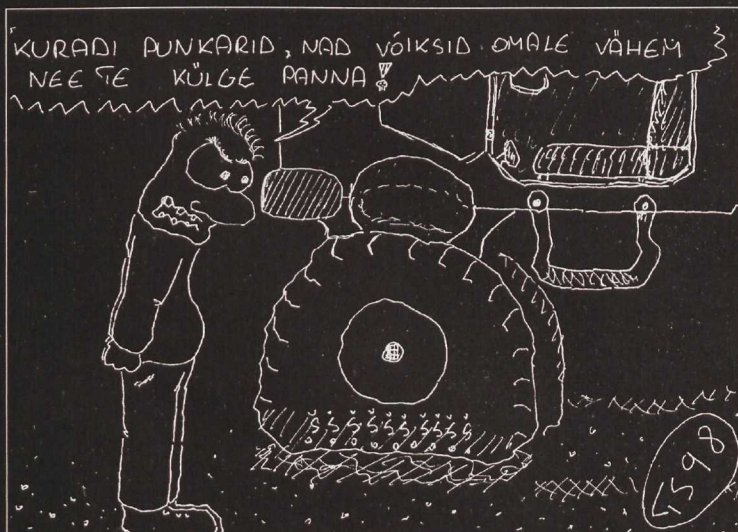 KURADI PUNKARID, NAD VÕIKSID OMALE VÄHEM
NEETE KÜLGE PANNA!